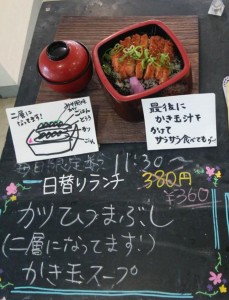 二層に
なってます!
ごはん
最後に
かき玉汁を
かけて
サラサラ食べてもう〜
毎日限定数 11:30〜
日替りランチ 380円
¥360
カツひつまぶし
(二層になってます!)
かき玉スープ